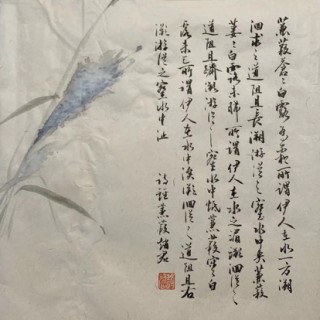 蒹葭蒼々白露為霜所謂伊人在水一方溯
洄從之道阻且長溯游從之宛在水中央蒹葭
萋々白露未晞所謂伊人在水之湄溯洄從之
道阻且躋溯游從之宛在水中坻蒹葭采々白
露未已所謂伊人在水之涘溯洄從之道阻且右
溯游從之宛在水中沚
詩經蒹葭